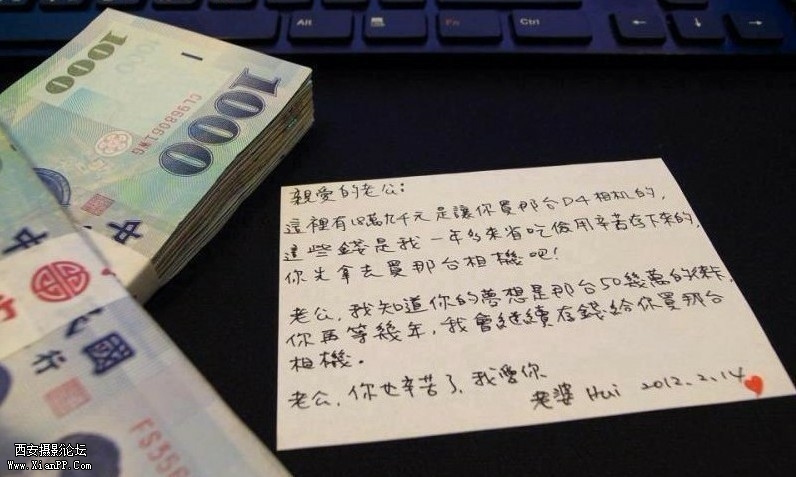 Alt
Fn
Ctrl
1000
1000
中
國
行
親愛的老公:
這裡有18萬九千元是讓你買那台D4相机的,
這些錢是我一年多來省吃儉用辛苦存下來的,
你先拿去買那台相機吧!
老公,我知道你的夢想是那台50幾萬的徠卡,
你再等幾年,我會繼續存錢給你買那台
相機。
老公,你也辛苦了,我愛你
老婆 Hui 2012.2.14
西安摄影论坛
Www.XianPP.Com